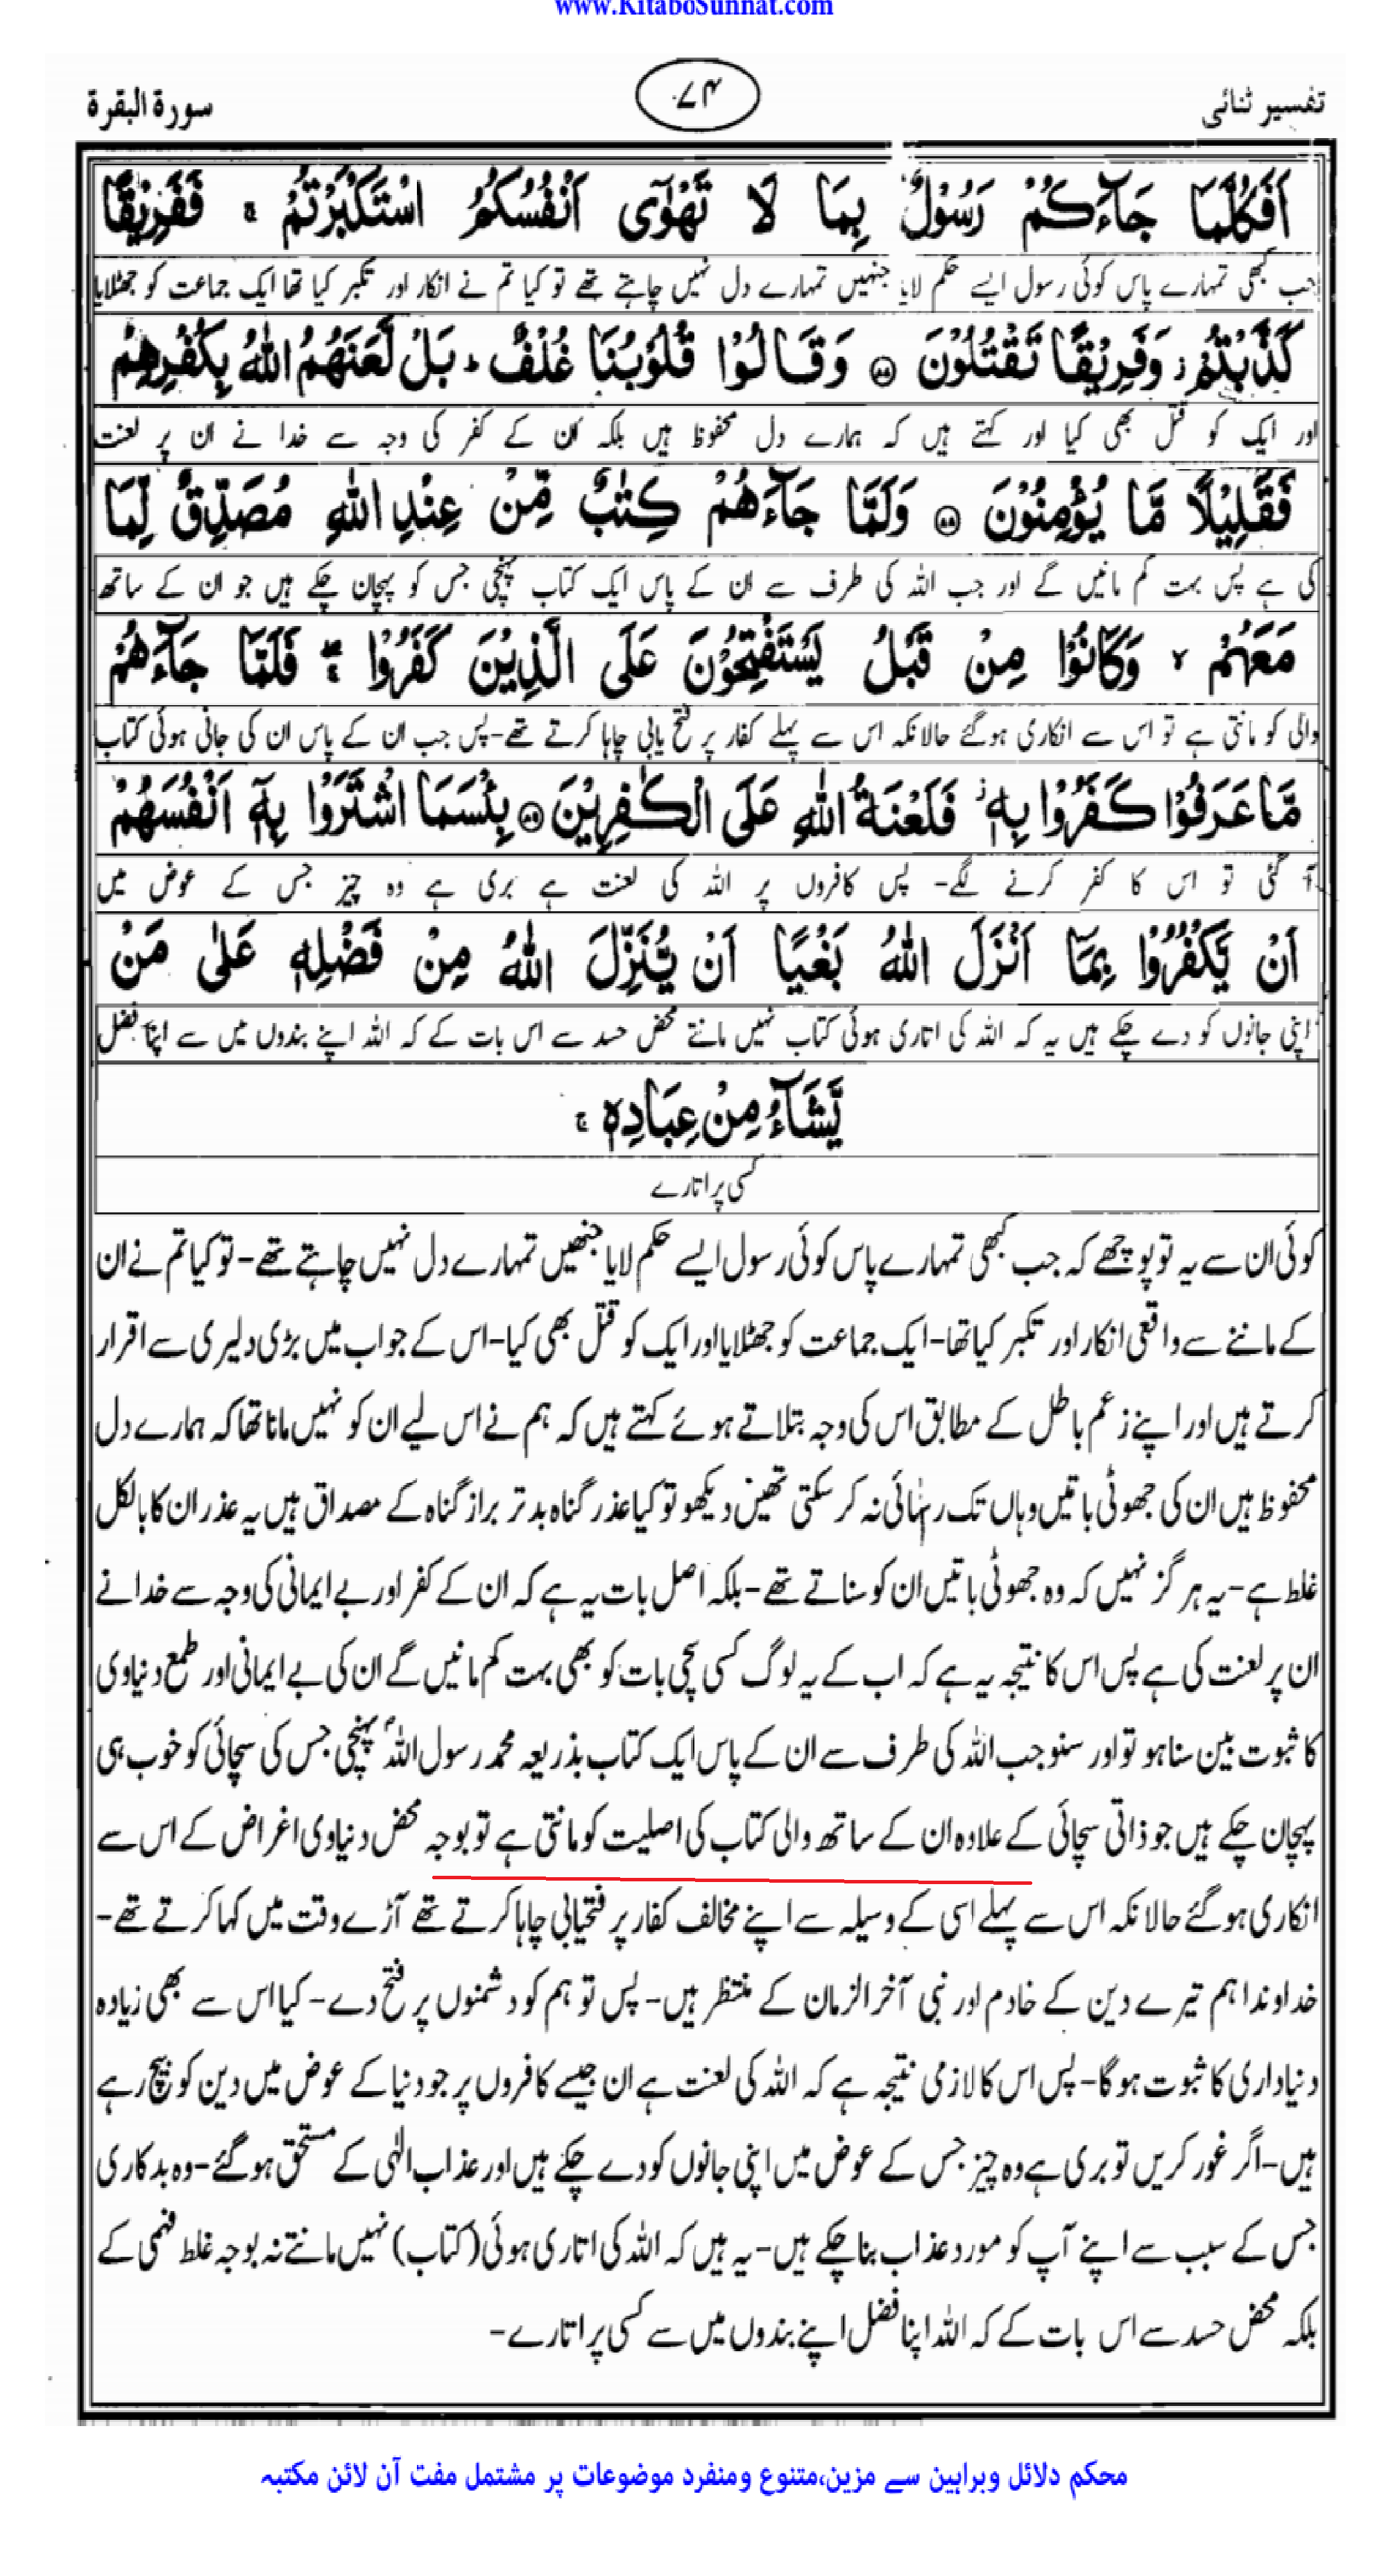 www.KitaboSunnat.com
تفسیر ثنائی
۷۴
سورة البقرة
اَفَكُلَّمَا جَآءَكُمْ رَسُوْلٌ بِمَا لَا تَهْوٰٓى اَنْفُسُكُمُ اسْتَكْبَرْتُمْ ۚ فَفَرِيْقًا
جب کبھی تمہارے پاس کوئی رسول ایسے حکم لایا جنہیں تمہارے دل نہیں چاہتے تھے تو کیا تم نے انکار اور تکبر کیا تھا ایک جماعت کو جھٹلایا
كَذَّبْتُمْ ؗ وَفَرِيْقًا تَقْتُلُوْنَ ۝ وَقَالُوْا قُلُوْبُنَا غُلْفٌ ؕ بَلْ لَّعَنَهُمُ اللّٰهُ بِكُفْرِهِمْ
اور ایک کو قتل بھی کیا اور کہتے ہیں کہ ہمارے دل محفوظ ہیں بلکہ ان کے کفر کی وجہ سے خدا نے ان پر لعنت
فَقَلِيْلًا مَّا يُؤْمِنُوْنَ ۝ وَلَمَّا جَآءَهُمْ كِتٰبٌ مِّنْ عِنْدِ اللّٰهِ مُصَدِّقٌ لِّمَا
کی ہے پس بہت کم مانیں گے اور جب اللہ کی طرف سے ان کے پاس ایک کتاب پہنچی جس کو پہچان چکے ہیں جو ان کے ساتھ
مَعَهُمْ ۙ وَكَانُوْا مِنْ قَبْلُ يَسْتَفْتِحُوْنَ عَلَى الَّذِيْنَ كَفَرُوْا ۖۚ فَلَمَّا جَآءَهُمْ
والی کو مانتی ہے تو اس سے انکاری ہوگئے حالانکہ اس سے پہلے کفار پر فتح یابی چاہا کرتے تھے- پس جب ان کے پاس ان کی جانی ہوئی کتاب
مَّا عَرَفُوْا كَفَرُوْا بِهٖ ؗ فَلَعْنَةُ اللّٰهِ عَلَى الْكٰفِرِيْنَ ۝ بِئْسَمَا اشْتَرَوْا بِهٖٓ اَنْفُسَهُمْ
آ گئی تو اس کا کفر کرنے لگے- پس کافروں پر اللہ کی لعنت ہے بری ہے وہ چیز جس کے عوض میں
اَنْ يَّكْفُرُوْا بِمَآ اَنْزَلَ اللّٰهُ بَغْيًا اَنْ يُّنَزِّلَ اللّٰهُ مِنْ فَضْلِهٖ عَلٰى مَنْ
اپنی جانوں کو دے چکے ہیں یہ کہ اللہ کی اتاری ہوئی کتاب نہیں مانتے محض حسد سے اس بات کے کہ اللہ اپنے بندوں میں سے اپنا فضل
يَّشَآءُ مِنْ عِبَادِهٖ ۚ
کسی پر اتارے
کوئی ان سے یہ تو پوچھے کہ جب کبھی تمہارے پاس کوئی رسول ایسے حکم لایا جنھیں تمہارے دل نہیں چاہتے تھے- تو کیا تم نے ان
کے ماننے سے واقعی انکار اور تکبر کیا تھا- ایک جماعت کو جھٹلایا اور ایک کو قتل بھی کیا- اس کے جواب میں بڑی دلیری سے اقرار
کرتے ہیں اور اپنے زعم باطل کے مطابق اس کی وجہ بتلاتے ہوئے کہتے ہیں کہ ہم نے اس لیے ان کو نہیں مانا تھا کہ ہمارے دل
محفوظ ہیں ان کی جھوٹی باتیں وہاں تک رہنمائی نہ کر سکتی تھیں دیکھو تو کیا عذر گناہ بدتر براز گناہ کے مصداق ہیں یہ عذر ان کا بالکل
غلط ہے- یہ ہرگز نہیں کہ وہ جھوٹی باتیں ان کو سناتے تھے- بلکہ اصل بات یہ ہے کہ ان کے کفر اور بے ایمانی کی وجہ سے خدا نے
ان پر لعنت کی ہے پس اس کا نتیجہ یہ ہے کہ اب کے یہ لوگ کسی سچی بات کو بھی بہت کم مانیں گے ان کی بے ایمانی اور طمع دنیاوی
کا ثبوت بین سنا ہو تو اور سنو جب اللہ کی طرف سے ان کے پاس ایک کتاب بذریعہ محمد رسول اللہؐ پہنچی جس کی سچائی کو خوب ہی
پہچان چکے ہیں جو ذاتی سچائی کے علاوہ ان کے ساتھ والی کتاب کی اصلیت کو مانتی ہے تو بوجہ محض دنیاوی اغراض کے اس سے
انکاری ہوگئے حالانکہ اس سے پہلے اسی کے وسیلہ سے اپنے مخالف کفار پر فتحیابی چاہا کرتے تھے آڑے وقت میں کہا کرتے تھے-
خداوندا ہم تیرے دین کے خادم اور نبی آخر الزمان کے منتظر ہیں- پس تو ہم کو دشمنوں پر فتح دے- کیا اس سے بھی زیادہ
دنیاداری کا ثبوت ہوگا- پس اس کا لازمی نتیجہ ہے کہ اللہ کی لعنت ہے ان جیسے کافروں پر جو دنیا کے عوض میں دین کو بیچ رہے
ہیں- اگر غور کریں تو بری ہے وہ چیز جس کے عوض میں اپنی جانوں کو دے چکے ہیں اور عذاب الٰہی کے مستحق ہوگئے- وہ بدکاری
جس کے سبب سے اپنے آپ کو مورد عذاب بنا چکے ہیں- یہ ہیں کہ اللہ کی اتاری ہوئی (کتاب) نہیں مانتے نہ بوجہ غلط فہمی کے
بلکہ محض حسد سے اس بات کے کہ اللہ اپنا فضل اپنے بندوں میں سے کسی پر اتارے-
محکم دلائل وبراہین سے مزین،متنوع ومنفرد موضوعات پر مشتمل مفت آن لائن مکتبہ